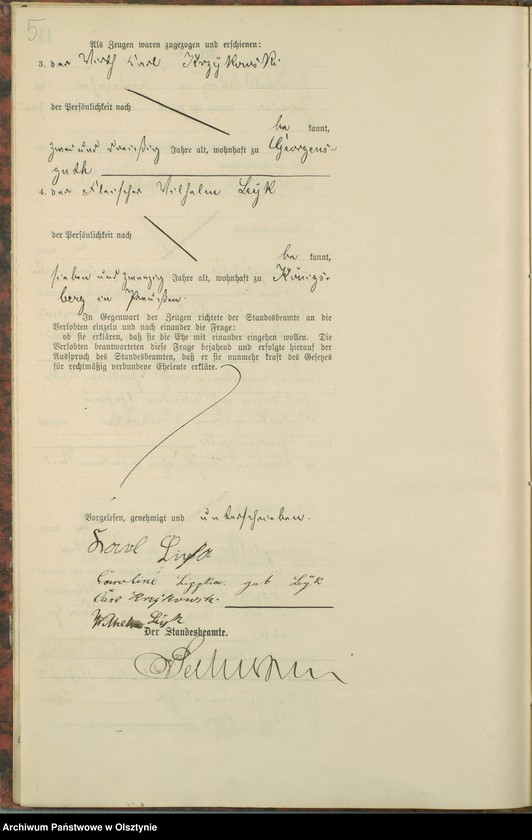 5
Als Zeugen waren zugezogen und erschienen:
3. der Wirth Carl Krzykowski
der Persönlichkeit nach
be kannt,
zwei und dreißig Jahre alt, wohnhaft zu Georgens-
guth
4. der Fleischer Wilhelm Leyk
der Persönlichkeit nach
be kannt,
sieben und zwanzig Jahre alt, wohnhaft zu Königs-
berg in Preußen.
In Gegenwart der Zeugen richtete der Standesbeamte an die
Verlobten einzeln und nach einander die Frage:
ob sie erklären, daß sie die Ehe mit einander eingehen wollen. Die
Verlobten beantworteten diese Frage bejahend und erfolgte hierauf der
Ausspruch des Standesbeamten, daß er sie nunmehr kraft des Gesetzes
für rechtmäßig verbundene Eheleute erkläre.
Vorgelesen, genehmigt und unterschrieben.
Karl
Caroline Lippka geb Leyk
Carl Krzykowski
Wilhelm Leyk
Der Standesbeamte.
Archiwum Państwowe w Olsztynie